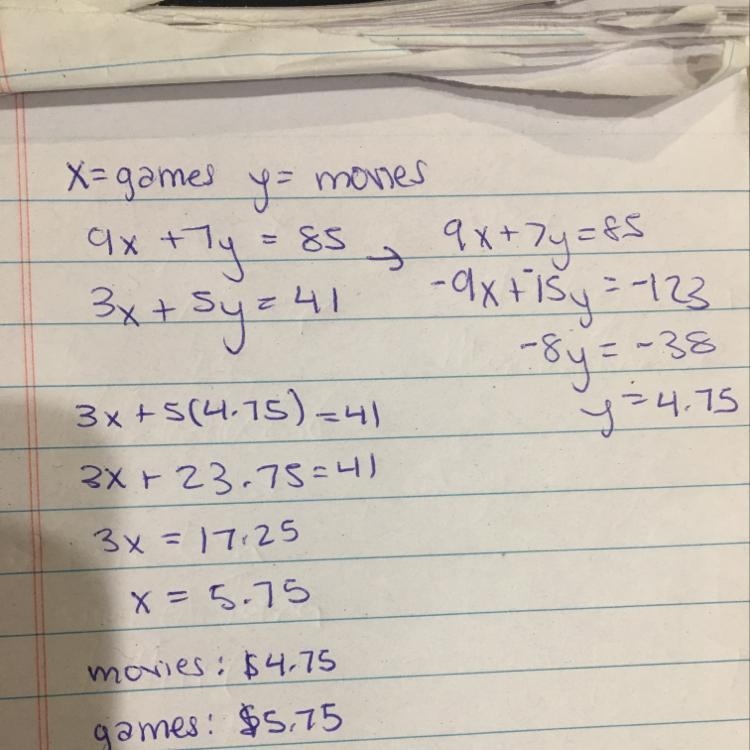 x = games y = movies
9x + 7y = 85 → 9x + 7y = 85
3x + 5y = 41 -9x + -15y = -123
-8y = -38
y = 4.75
3x + 5(4.75) = 41
3x + 23.75 = 41
3x = 17.25
x = 5.75
movies: $4.75
games: $5.75